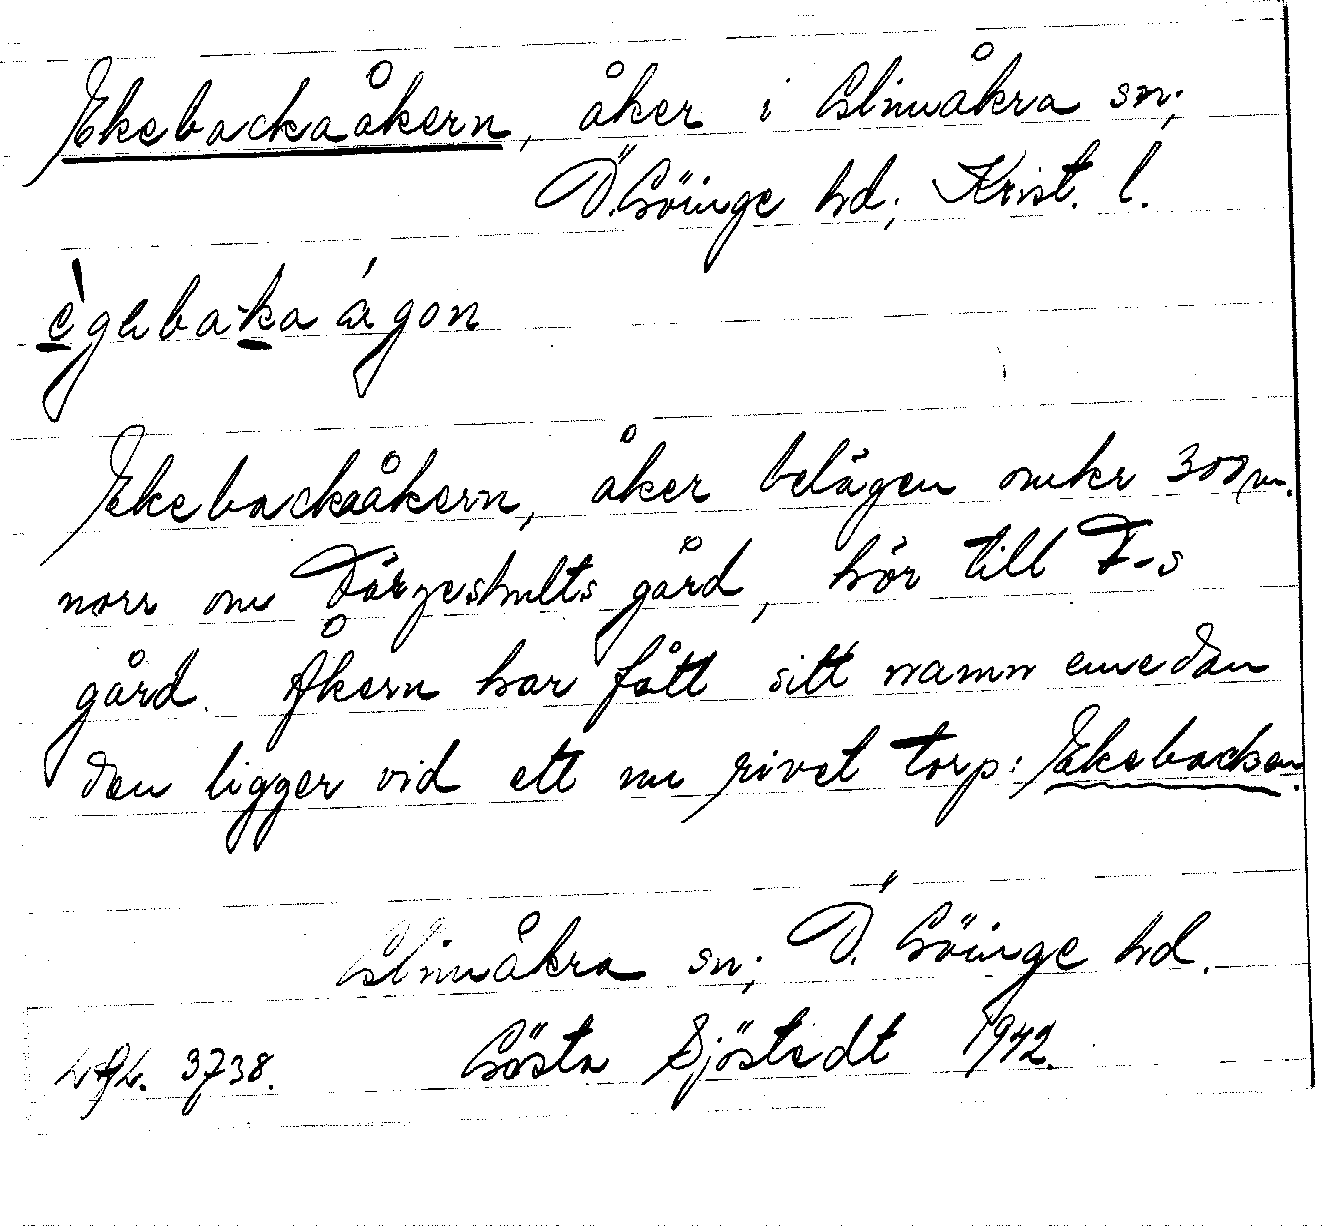 Ekebackaåkern, åker i Glimåkra sn;
Ö. Göinge hd; Krist. l.
Ekebackaåkern, åker belägen omkr 300 m.
norr om Färgeshults gård, hör till F-s
gård. Åkern har fått sitt namn emedan
den ligger vid ett nu rivet torp: Ekebacken.
Glimåkra sn; Ö. Göinge hd.
3738. Gösta Sjöstedt 1942.